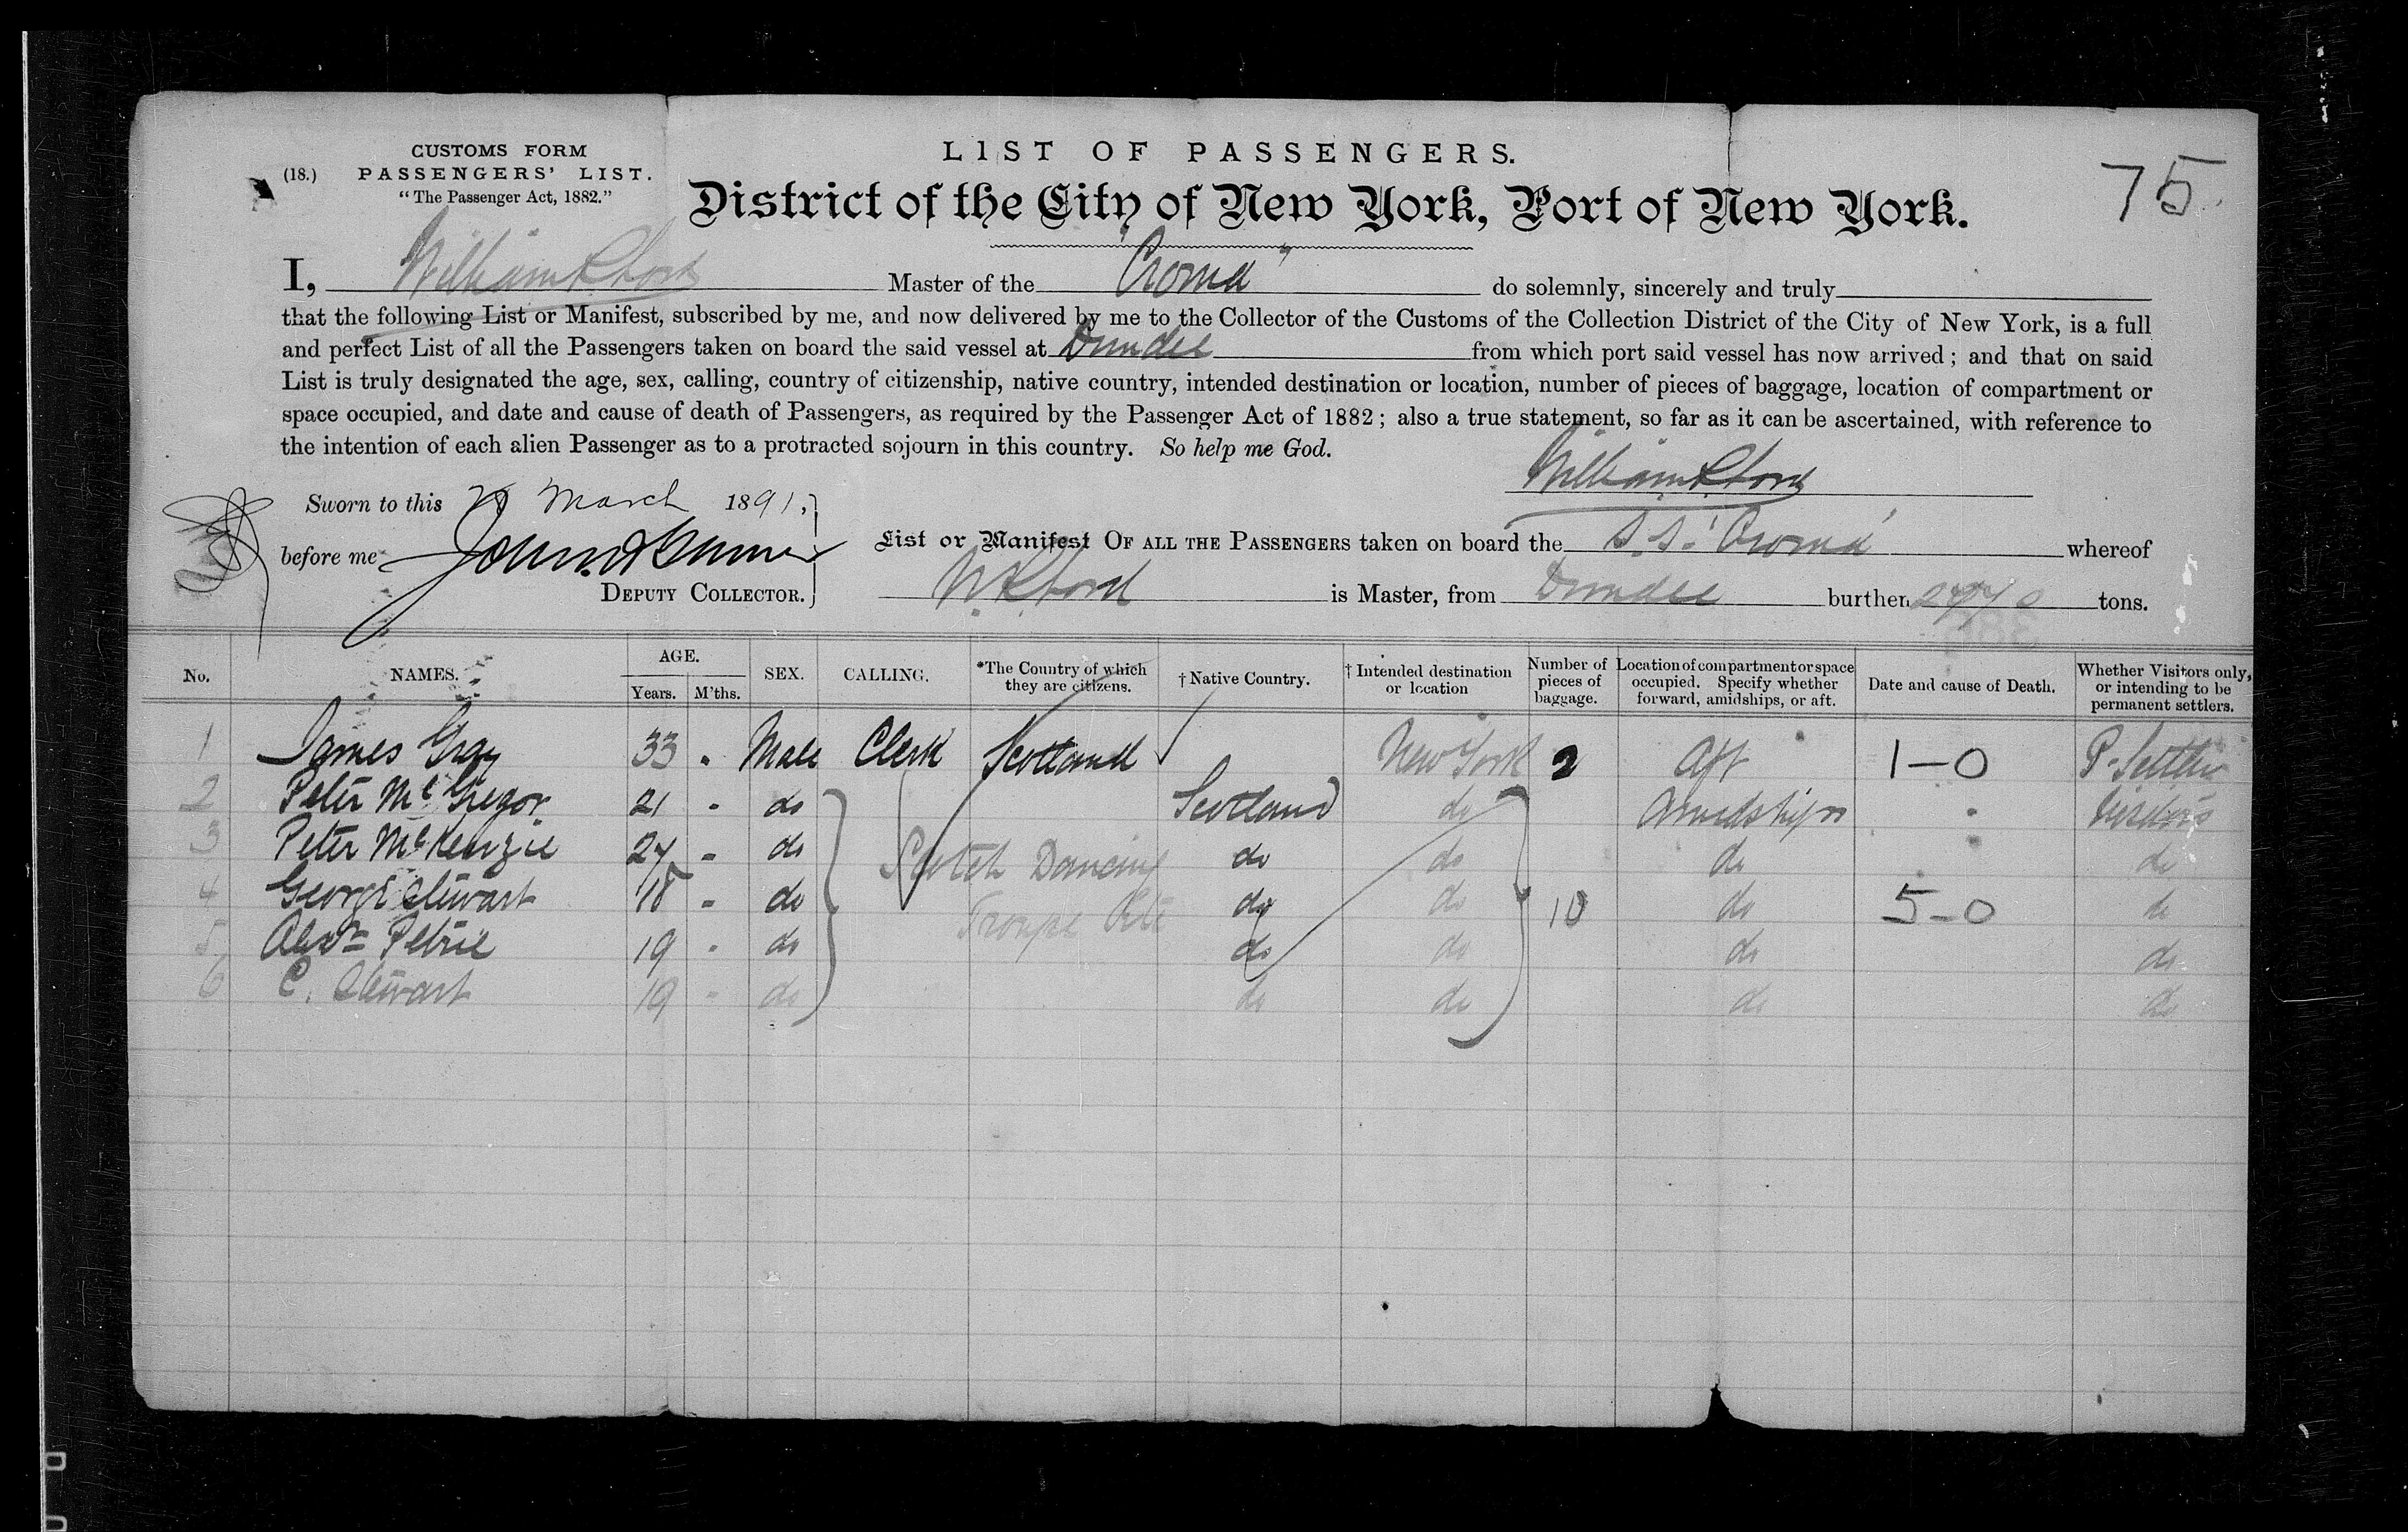 CUSTOMS FORM
(18.) PASSENGERS' LIST.
"The Passenger Act, 1882."
LIST OF PASSENGERS.
District of the City of New York, Port of New York.
75
I, William Master of the "Croma" do solemnly, sincerely and truly
that the following List or Manifest, subscribed by me, and now delivered by me to the Collector of the Customs of the Collection District of the City of New York, is a full
and perfect List of all the Passengers taken on board the said vessel at Dundee from which port said vessel has now arrived; and that on said
List is truly designated the age, sex, calling, country of citizenship, native country, intended destination or location, number of pieces of baggage, location of compartment or
space occupied, and date and cause of death of Passengers, as required by the Passenger Act of 1882; also a true statement, so far as it can be ascertained, with reference to
the intention of each alien Passenger as to a protracted sojourn in this country. So help me God.
William
Sworn to this March 1891.
before me John
DEPUTY COLLECTOR.
List or Manifest OF ALL THE PASSENGERS taken on board the S.S. "Croma" whereof
is Master, from Dundee burthen tons.
No. NAMES. AGE. Years. M'ths. SEX. CALLING. *The Country of which they are citizens. † Native Country. † Intended destination or location Number of pieces of baggage. Location of compartment or space occupied. Specify whether forward, amidships, or aft. Date and cause of Death. Whether Visitors only, or intending to be permanent settlers.
1 James Gray 33 " Male Clerk Scotland New York 2 Aft 1-0 P. Settler
2 Peter McGregor 21 " do Scotland do Amidships " Visitors
3 Peter McKenzie 27 " do Scotch Dancing do do do " do
4 George Stewart 18 " do Troupe do do 10 do 5-0 do
5 Alexr Petrie 19 " do do do do do
6 C. Stewart 19 " do do do do do